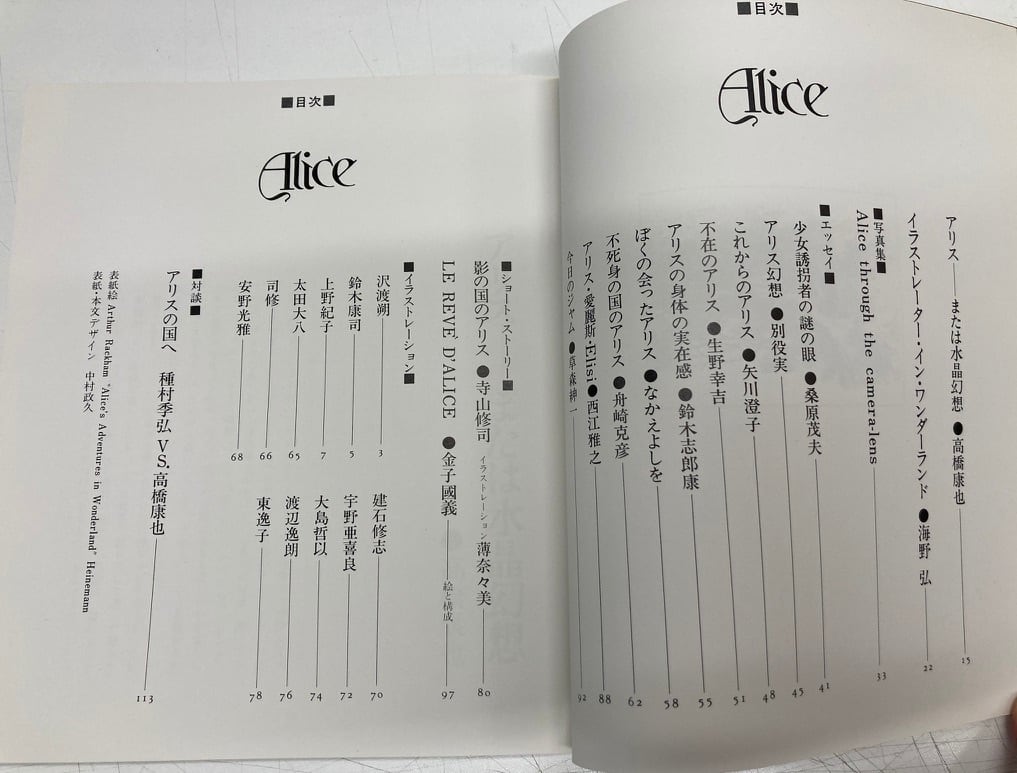 ■目次■
Alice
アリス──または水晶幻想 ●高橋康也 15
イラストレーター・イン・ワンダーランド ●海野 弘 22
■写真集■
Alice through the camera-lens 33
■エッセイ■
少女誘拐者の謎の眼 ●桑原茂夫 41
アリス幻想 ●別役実 45
これからのアリス ●矢川澄子 48
不在のアリス ●生野幸吉 51
アリスの身体の実在感 ●鈴木志郎康 55
ぼくの会ったアリス ●なかえよしを 58
不死身の国のアリス ●舟崎克彦 62
アリス・愛麗斯・Elisi ●西江雅之 88
今日のジャム ●草森紳一 92
■目次■
Alice
■ショート・ストーリー■
影の国のアリス ●寺山修司 イラストレーション 薄奈々美 80
LE REVE D'ALICE ●金子國義 絵と構成 97
■イラストレーション■
沢渡朔 3
鈴木康司 5
上野紀子 7
太田大八 65
司修 66
安野光雅 68
建石修志 70
宇野亜喜良 72
大島哲以 74
渡辺逸朗 76
東逸子 78
■対談■
アリスの国へ 種村季弘 VS. 高橋康也 113
表紙絵 Arthur Rackham "Alice's Adventures in Wonderland" Heinemann
表紙・本文デザイン 中村政久